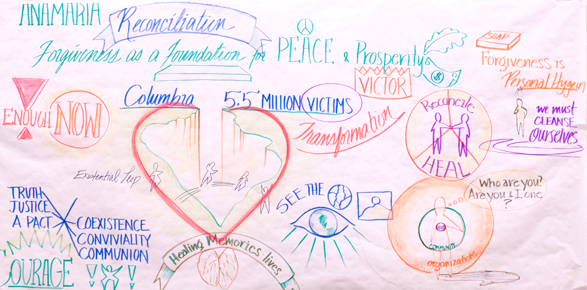 ANAMARIA
Reconciliation
Forgivness as a Foundation for PEACE & Prosperity
$
SOAP
Forgiveness is
Personal Hygien
we must
CLEANSE
ourselves
ENOUGH
NOW
Columbia
5.5 MILLION VICTIMS
VICTOR
Transformation
Reconcile
HEAL
Existential Leap
TRUTH
JUSTICE
A PACT
COEXISTENCE
CONVIVIALITY
COMMUNION
OURAGE
SEE THE
Healing Memories lives
Who are you?
Are you & I one
?
COMMUNITY
organizations